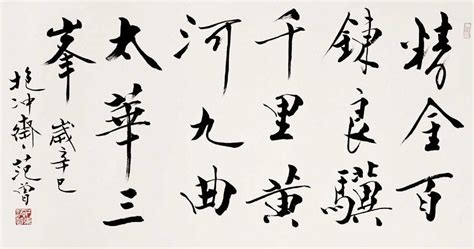 精金百
鍊良驥
千里黄
河九曲
太華三
峯 歲辛巳
抱冲齋范曾